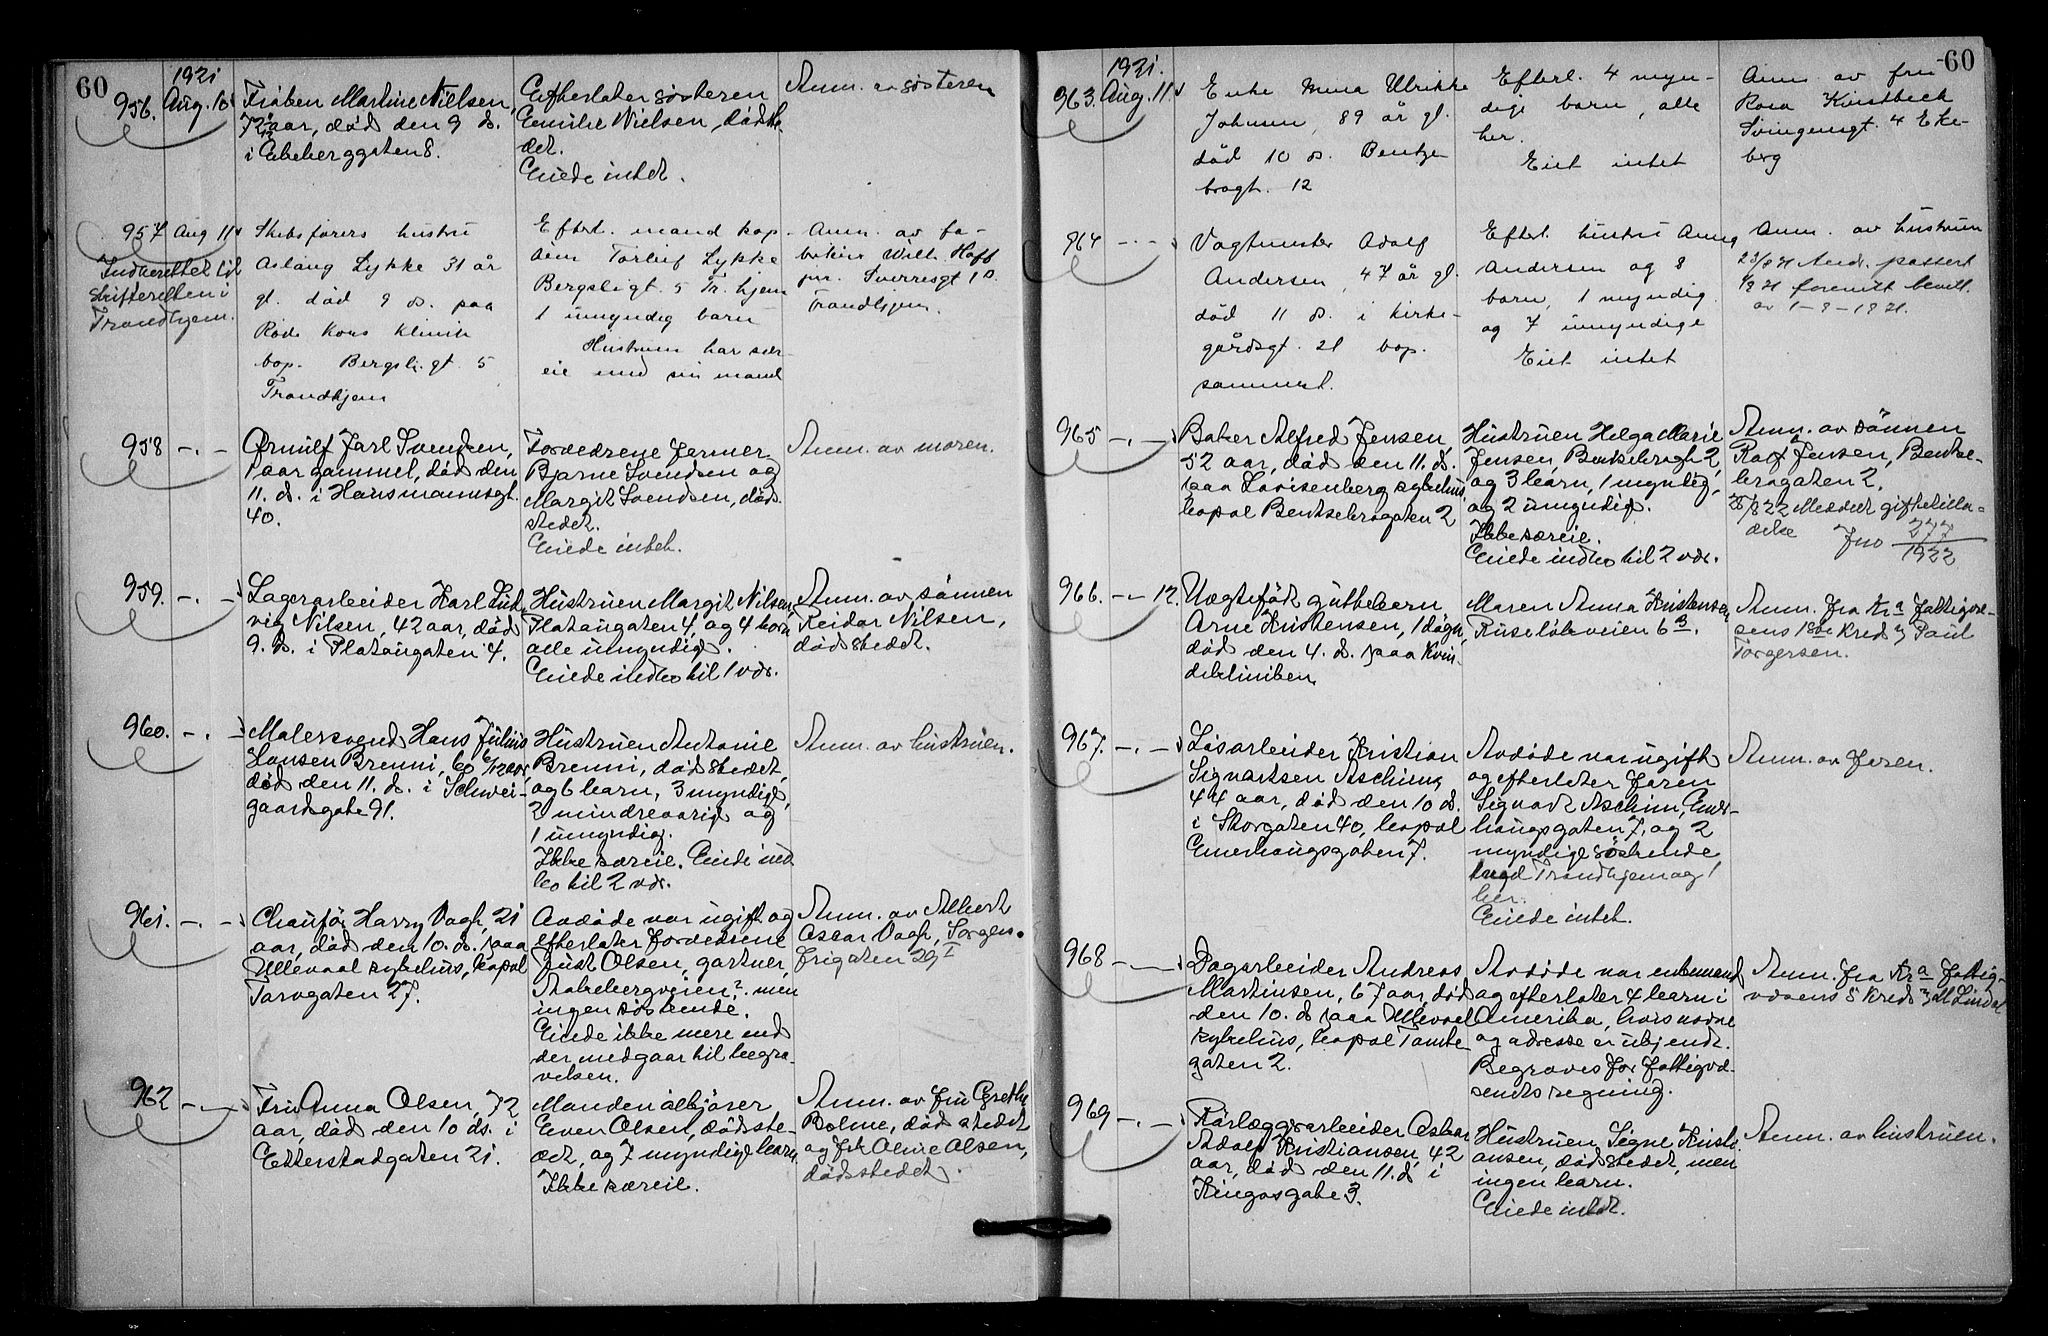 60
1921
956.
Aug. 10
Frøken Martine Nielsen,
72 aar, død den 9 ds.
i Ekeberggaten 8.
Efterlater søsteren
Emilie Nielsen, dødste-
det.
Eiede intet.
Anm. av søsteren
957
Aug 11
Indberettet til
skifteretten i
Trondhjem.
Skibsførers hustru
Aslaug Lykke 31 år
gl. død 9 ds. paa
Røde Kors Klinik
bop. Bergsligt. 5
Trondhjem
Efterl. mand kap-
tein Torleif Lykke
Bergsligt. 5 Tr.hjem
1 umyndig barn
Hustruen har sær-
eie med sin mand
Anm. av fa-
brikeier Wilh. Hoff
jnr. Sverresgt 1 b.
Trondhjem.
958 -.-
Ørnulf Jarl Svendsen,
1 aar gammel, død den
11. ds. i Hausmannsgt.
40.
Forældrene Jermer
Bjarne Svendsen og
Margit Svendsen, død-
stedet.
Eiede intet.
Anm. av moren.
959. -.-
Lagerarbeider Karl Lud-
vig Nilsen, 42 aar, død
9. ds. i Platougaten 4.
Hustruen Margit Nilsen,
Platougaten 4, og 4 barn
alle umyndige.
Eiede indbo til 1 vdr.
Anm. av sønnen
Reidar Nilsen,
dødstedet.
960. -.-
Malersvend Hans Julius
Hansen Brenni, 60 6/12 aar,
død den 11. ds. i Schwei-
gaardsgate 91.
Hustruen Antonie
Brenni, dødstedet,
og 6 barn, 3 myndige,
2 mindreaarig og
1 umyndig.
Ikke særeie. Eiede ind-
bo til 2 vdr.
Anm. av hustruen.
961. -.-
Chaufør Harry Vagh, 21
aar, død den 10. ds. paa
Ullevaal sykehus, bopal
Torvgaten 27.
Avdøde var ugift og
efterlater forældrene
Just Olsen, gartner,
Aakebergveien ?, men
ingen søskende.
Eiede ikke mere end
der medgaar til begra-
velsen.
Anm. av Albert
Oscar Vagh, Sorgen-
frigaten 29 I
962 -.-
Fru Anna Olsen, 72
aar, død den 10 ds. i
Etterstadgaten 21.
Manden
Even Olsen, dødste-
det, og 7 myndige barn.
Ikke særeie.
Anm. av fru Grethe
Bolme, dødstedet
og frk Olsen,
dødstedet.
60
1921.
963.
Aug. 11
Enke Mina Ulrikke
Johnsen, 89 år gl.
død 10 ds. Bentze
brogt. 12
Efterl. 4 myn-
dige barn, alle
her.
Eiet intet
Anm. av fru
Rosa Kvistbeck
Svingensgt. 4 Eke-
berg
964 -.-
Vagtmester Adolf
Andersen, 47 år gl.
død 11 ds. i Kirke-
gårdsgt. 21 bop.
sammest.
Efterl. hustru Anna
Andersen og 8
barn, 1 myndig
og 7 umyndige
Eiet intet
Anm. av hustruen
965 -.-
Baker Alfred Jensen,
52 aar, død den 11. ds.
paa Lovisenberg sykehus,
bopal Bentsebrogaten 2
Hustruen Helga Marie
Jensen, Bentsebrogt 2,
og 3 barn, 1 myndig,
og 2 umyndige.
Ikke særeie.
Eiede indbo til 2 vdr.
Anm. av sønnen
Rolf Jensen, Bentse-
brogaten 2.
26/8 22 Meddelt giftetilla-
delse Jno 277/1922
966. -.- 12.
Uægtefødt guttebarn,
Arne Kristensen, 1 døgn,
død den 4. ds. paa Kvin-
deklinikken
Maren Anna Kristensen,
Ruseløkveien 63.
Anm. fra Kra Fattigvæ-
sens 18de Kreds v/ Paul
Torgersen.
967. -.-
Løsarbeider Kristian
Sigvartsen Aschim,
44 aar, død den 10 ds.
i Storgaten 40, bopal
Enerhaugsgaten 7.
Avdøde var ugift
og efterlater faren
Sigvart Aschim, Ener-
haugsgaten 7, og 2
myndige søskende,
1 ved Trondhjem og 1
her.
Eiede intet.
Anm. av faren.
968 -.-
Dagarbeider Andreas
Martinsen, 67 aar, død
den 10. ds paa Ullevaal
sykehus, bopal Tomte
gaten 2.
Avdøde var enkemand
og efterlater 4 barn i
Amerika, hvis navne
og adresse er ukjendt.
Begraves for fattigvæ-
senets regning.
Anm. fra Kra Fattig-
væsens 5 Kreds v/
969 -.-
Rørlæggerarbeider Oskar
Adolf Kristiansen, 42
aar, død den 11. ds i
Kingosgate 3.
Hustruen Signe Kristi-
ansen, dødstedet, men
ingen barn.
Eiede intet.
Anm. av hustruen.